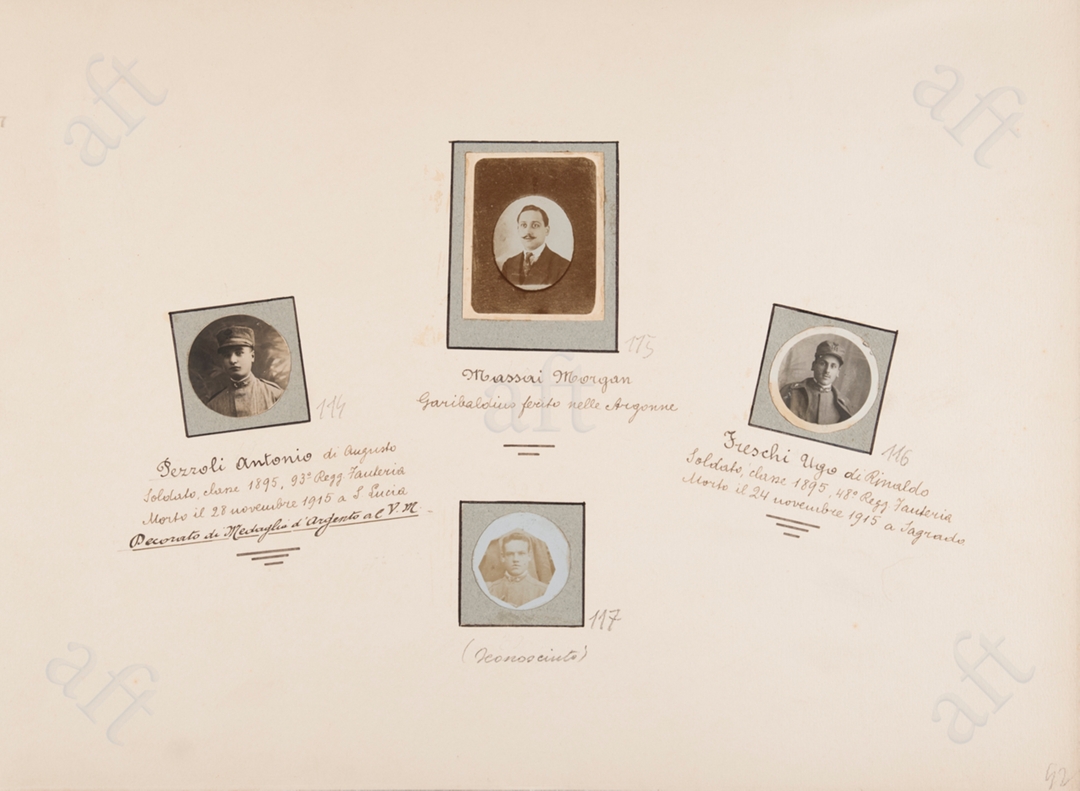 aft
aft
115
Massai Morgan
Garibaldino ferito nelle Argonne
aft
114
Pezzoli Antonio di Augusto
Soldato, classe 1895, 93° Regg. Fanteria
Morto il 28 novembre 1915 a S. Lucia
Decorato di Medaglia d'Argento al V.M.
116
Freschi Ugo di Rinaldo
Soldato, classe 1895, 48° Regg. Fanteria
Morto il 24 novembre 1915 a Sagrado
117
(Sconosciuto)
aft
aft
92